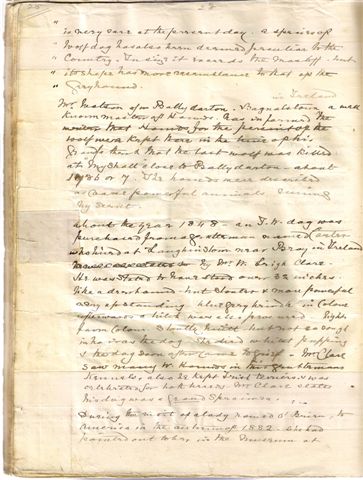 28
" is very rare at the present day. a species of
" Wolf dog has also been deemed peculiar to the
" Country. In size it exceeds the Mastiff. but
" its shape has more resemblance to that of the
" Greyhound.
in Ireland
Mr. Watson of Ballydarton. Bagnalstown a well
known master of Hounds. has informed the
writer that Hounds for the pursuit of the
wolf were kept there in the time of his
Grandfather & that the last wolf was killed
at Myshall close to Ballydarton about
1786 or 7. The hounds were described
as coarse powerful animals running
by scent.
about the year 1848 an I.W. dog was
purchased from a gentleman named Carter
who lived at Loughlinstown near Bray in Ireland
by Mr. W. Leigh Clare.
He was stated to have stood over 32 inches
like a deerhound. but stouter & more powerful
very upstanding blue grey brindle in Colour
afterwards a bitch was also procured. light
fawn Colour. Stoutly built but not so rough
in hair as the dog. She died whilst pupping
& the dog soon after came to grief. Mr. Clare
saw many to Hounds in this gentlemans
Kennels, also he kept Irish terriers & was
celebrated for both breeds. Mr. Clare states
his dog was a grand specimen.
During the visit of a lady named O'Brien, to
America in the autumn of 1882. she had
pointed out to her in the Museum at